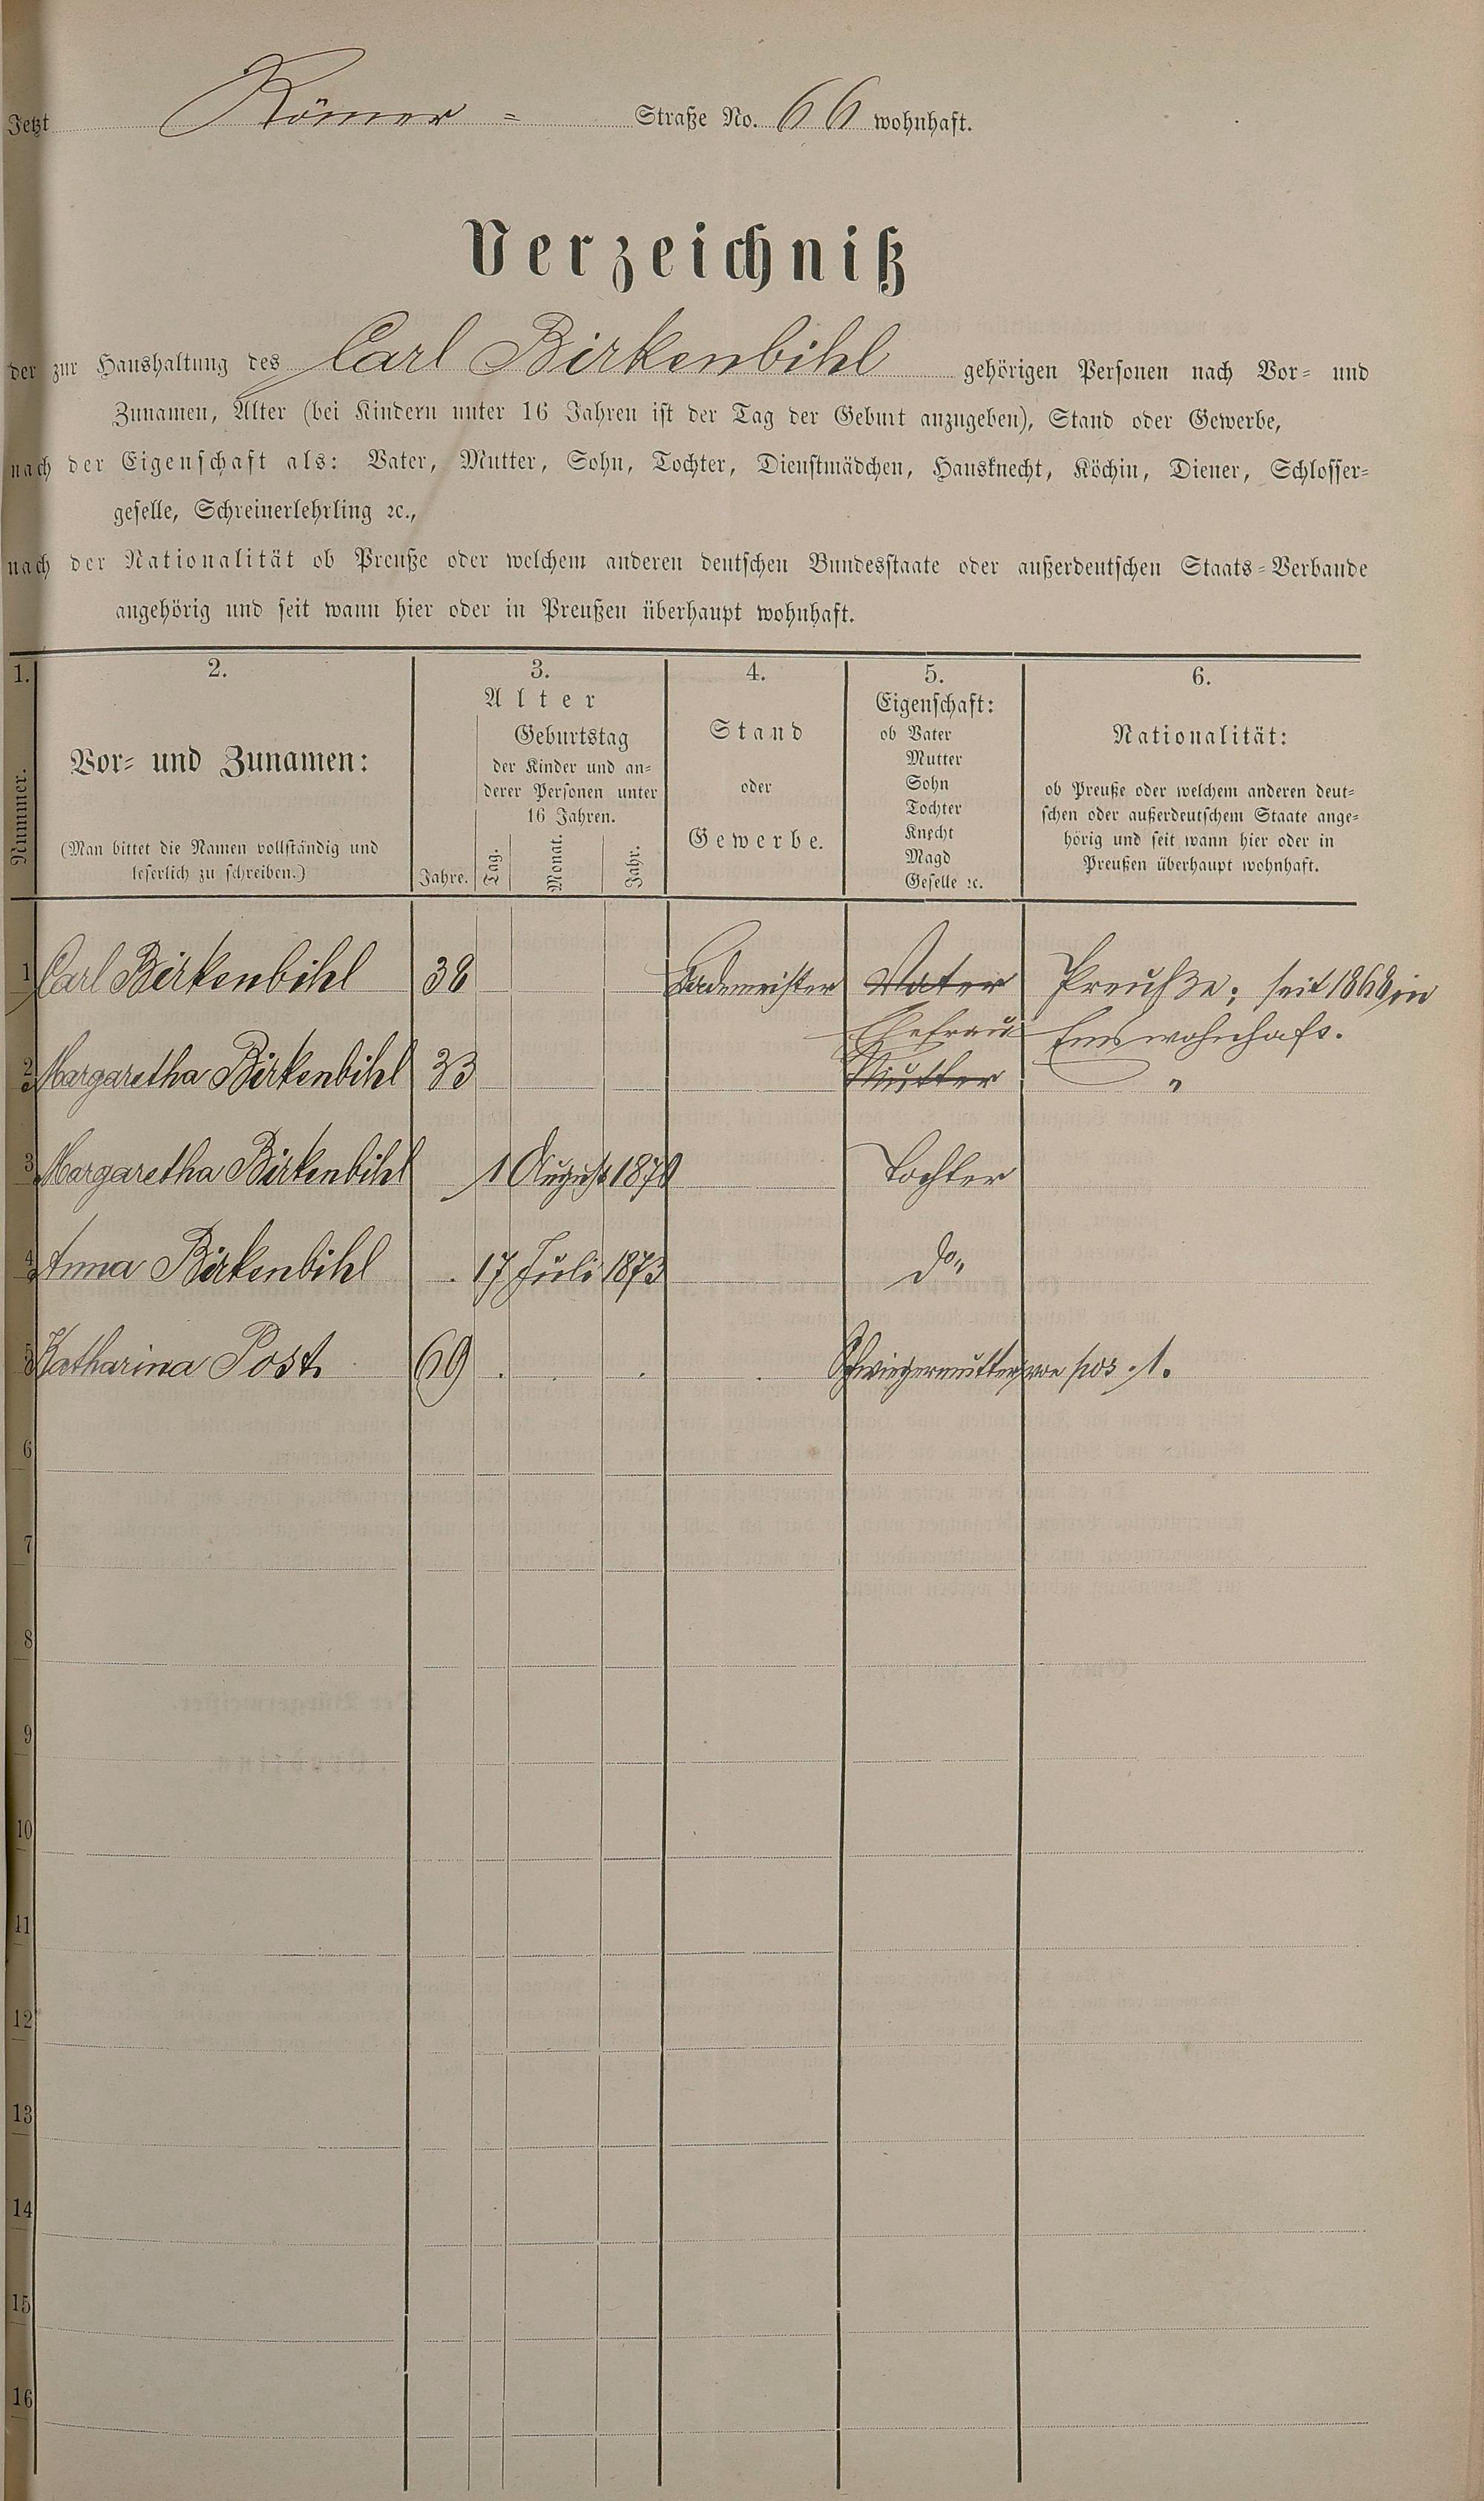 Jetzt Römer = Straße No. 66 wohnhaft.
Verzeichniß
der zur Haushaltung des Carl Birkenbihl gehörigen Personen nach Vor= und
Zunamen, Alter (bei Kindern unter 16 Jahren ist der Tag der Geburt anzugeben), Stand oder Gewerbe,
nach der Eigenschaft als: Vater, Mutter, Sohn, Tochter, Dienstmädchen, Hausknecht, Köchin, Diener, Schlosser=
geselle, Schreinerlehrling ꝛc.,
nach der Nationalität ob Preuße oder welchem anderen deutschen Bundesstaate oder außerdeutschen Staats=Verbande
angehörig und seit wann hier oder in Preußen überhaupt wohnhaft.
1.
Nummer.
2.
Vor= und Zunamen:
(Man bittet die Namen vollständig und
leserlich zu schreiben.)
3.
Alter
Jahre.
Geburtstag
der Kinder und an=
derer Personen unter
16 Jahren.
Tag.
Monat.
Jahr.
4.
Stand
oder
Gewerbe.
5.
Eigenschaft:
ob Vater
Mutter
Sohn
Tochter
Knecht
Magd
Geselle ꝛc.
6.
Nationalität:
ob Preuße oder welchem anderen deut=
schen oder außerdeutschem Staate ange=
hörig und seit wann hier oder in
Preußen überhaupt wohnhaft.
1 Carl Birkenbihl 38 Bademeister Vater Preuße; seit 1868 in
Ehefrau Ems wohnhaft.
2 Margaretha Birkenbihl 33 Mutter "
3 Margaretha Birkenbihl 1 August 1870 Tochter
4 Anna Birkenbihl 17 Juli 1873 do"
5 Katharina Post 69 Schwiegermutter von pos. 1.
6
7
8
9
10
11
12
13
14
15
16